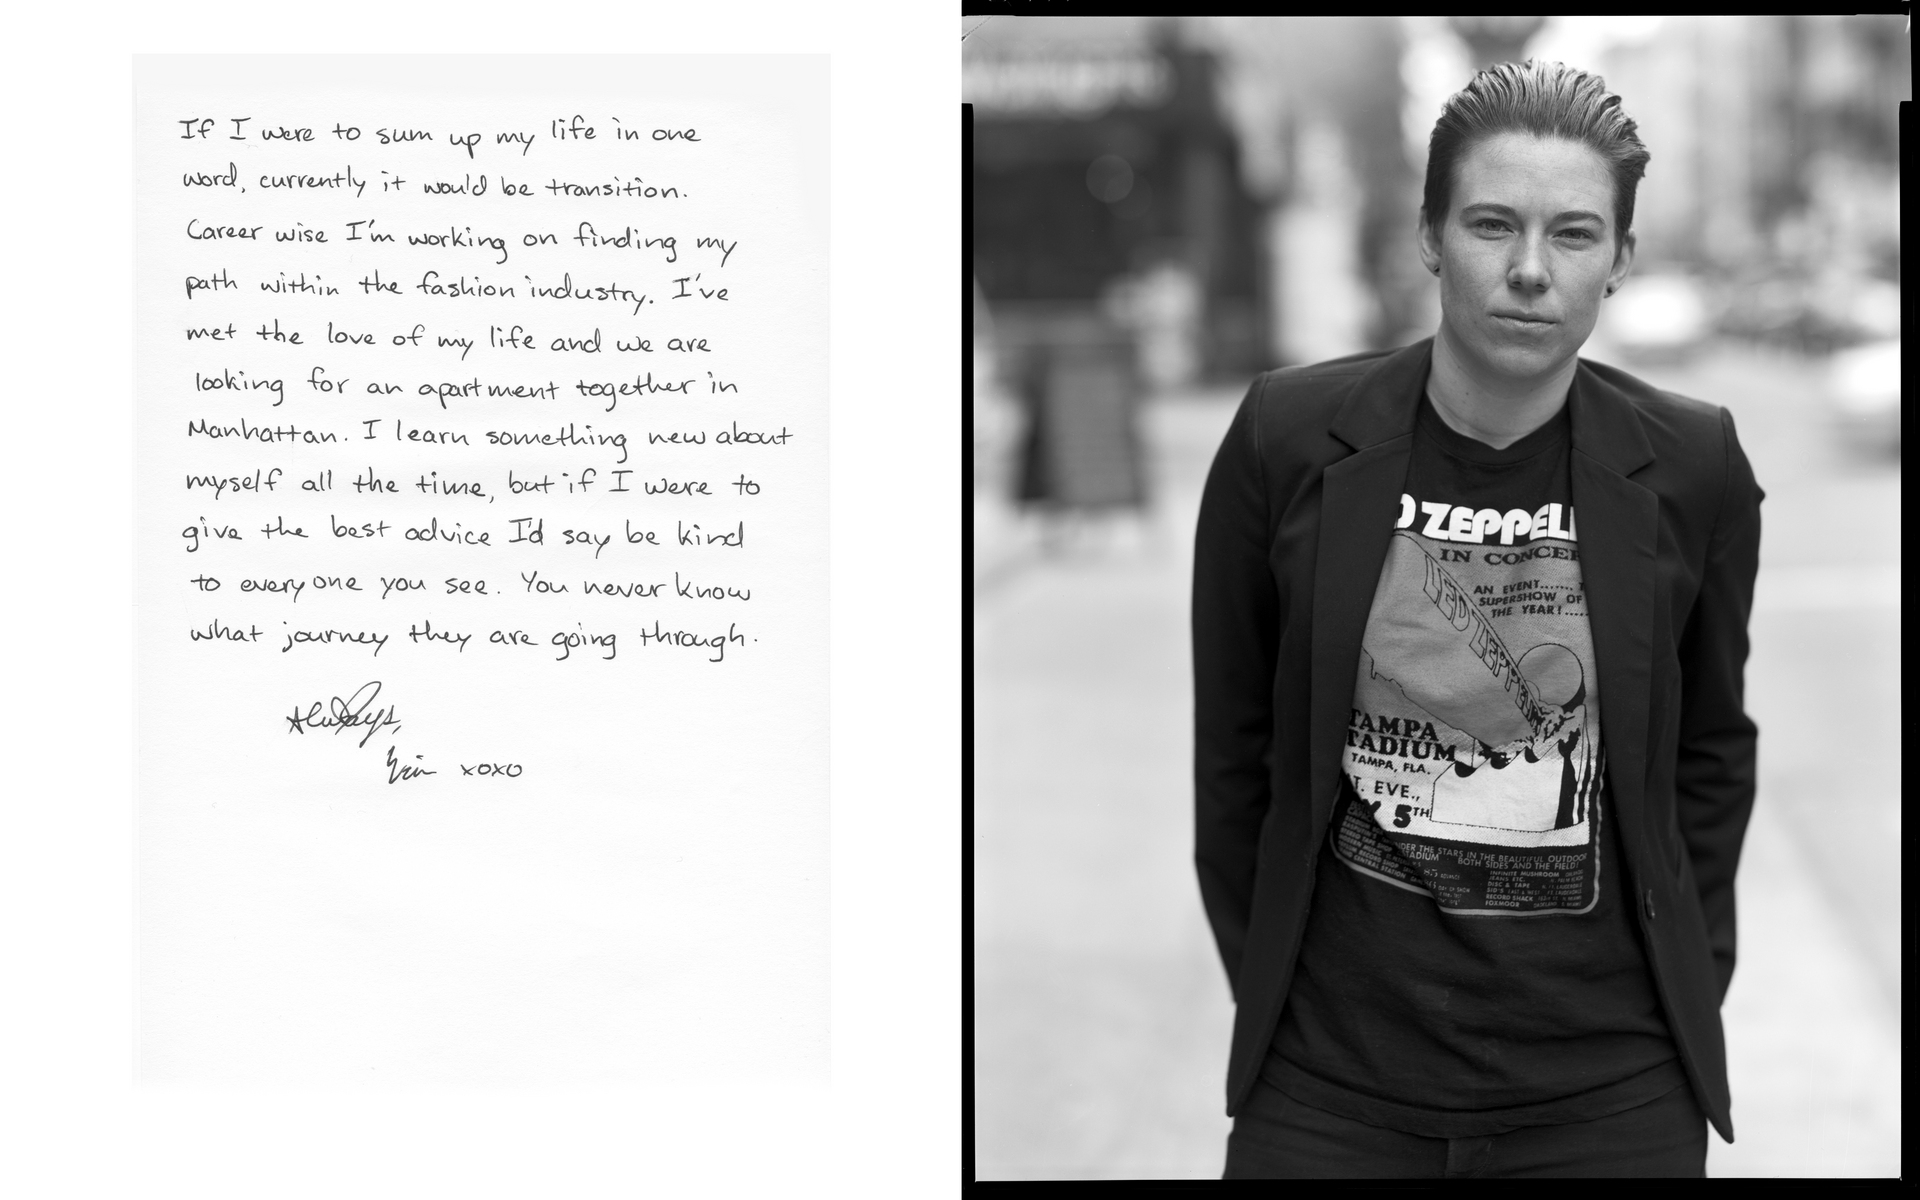 If I were to sum up my life in one
word, currently it would be transition.
Career wise I'm working on finding my
path within the fashion industry. I've
met the love of my life and we are
looking for an apartment together in
Manhattan. I learn something new about
myself all the time, but if I were to
give the best advice I'd say be kind
to everyone you see. You never know
what journey they are going through.
Always,
Erin xoxo
D ZEPPELI
IN CONCER
AN EVENT.......
SUPERSHOW OF
THE YEAR!.....
LED ZEPPELIN
TAMPA
TADIUM
TAMPA, FLA.
T. EVE.,
Y 5TH
NDER THE STARS IN THE BEAUTIFUL OUTDOO
STADIUM BOTH SIDES AND THE FIELD!
INFINITE MUSHROOM
JEANS ETC.
DISC & TAPE
SID'S
RECORD SHACK
FOXMOOR
RECORD SHOP
CENTRAL STATION